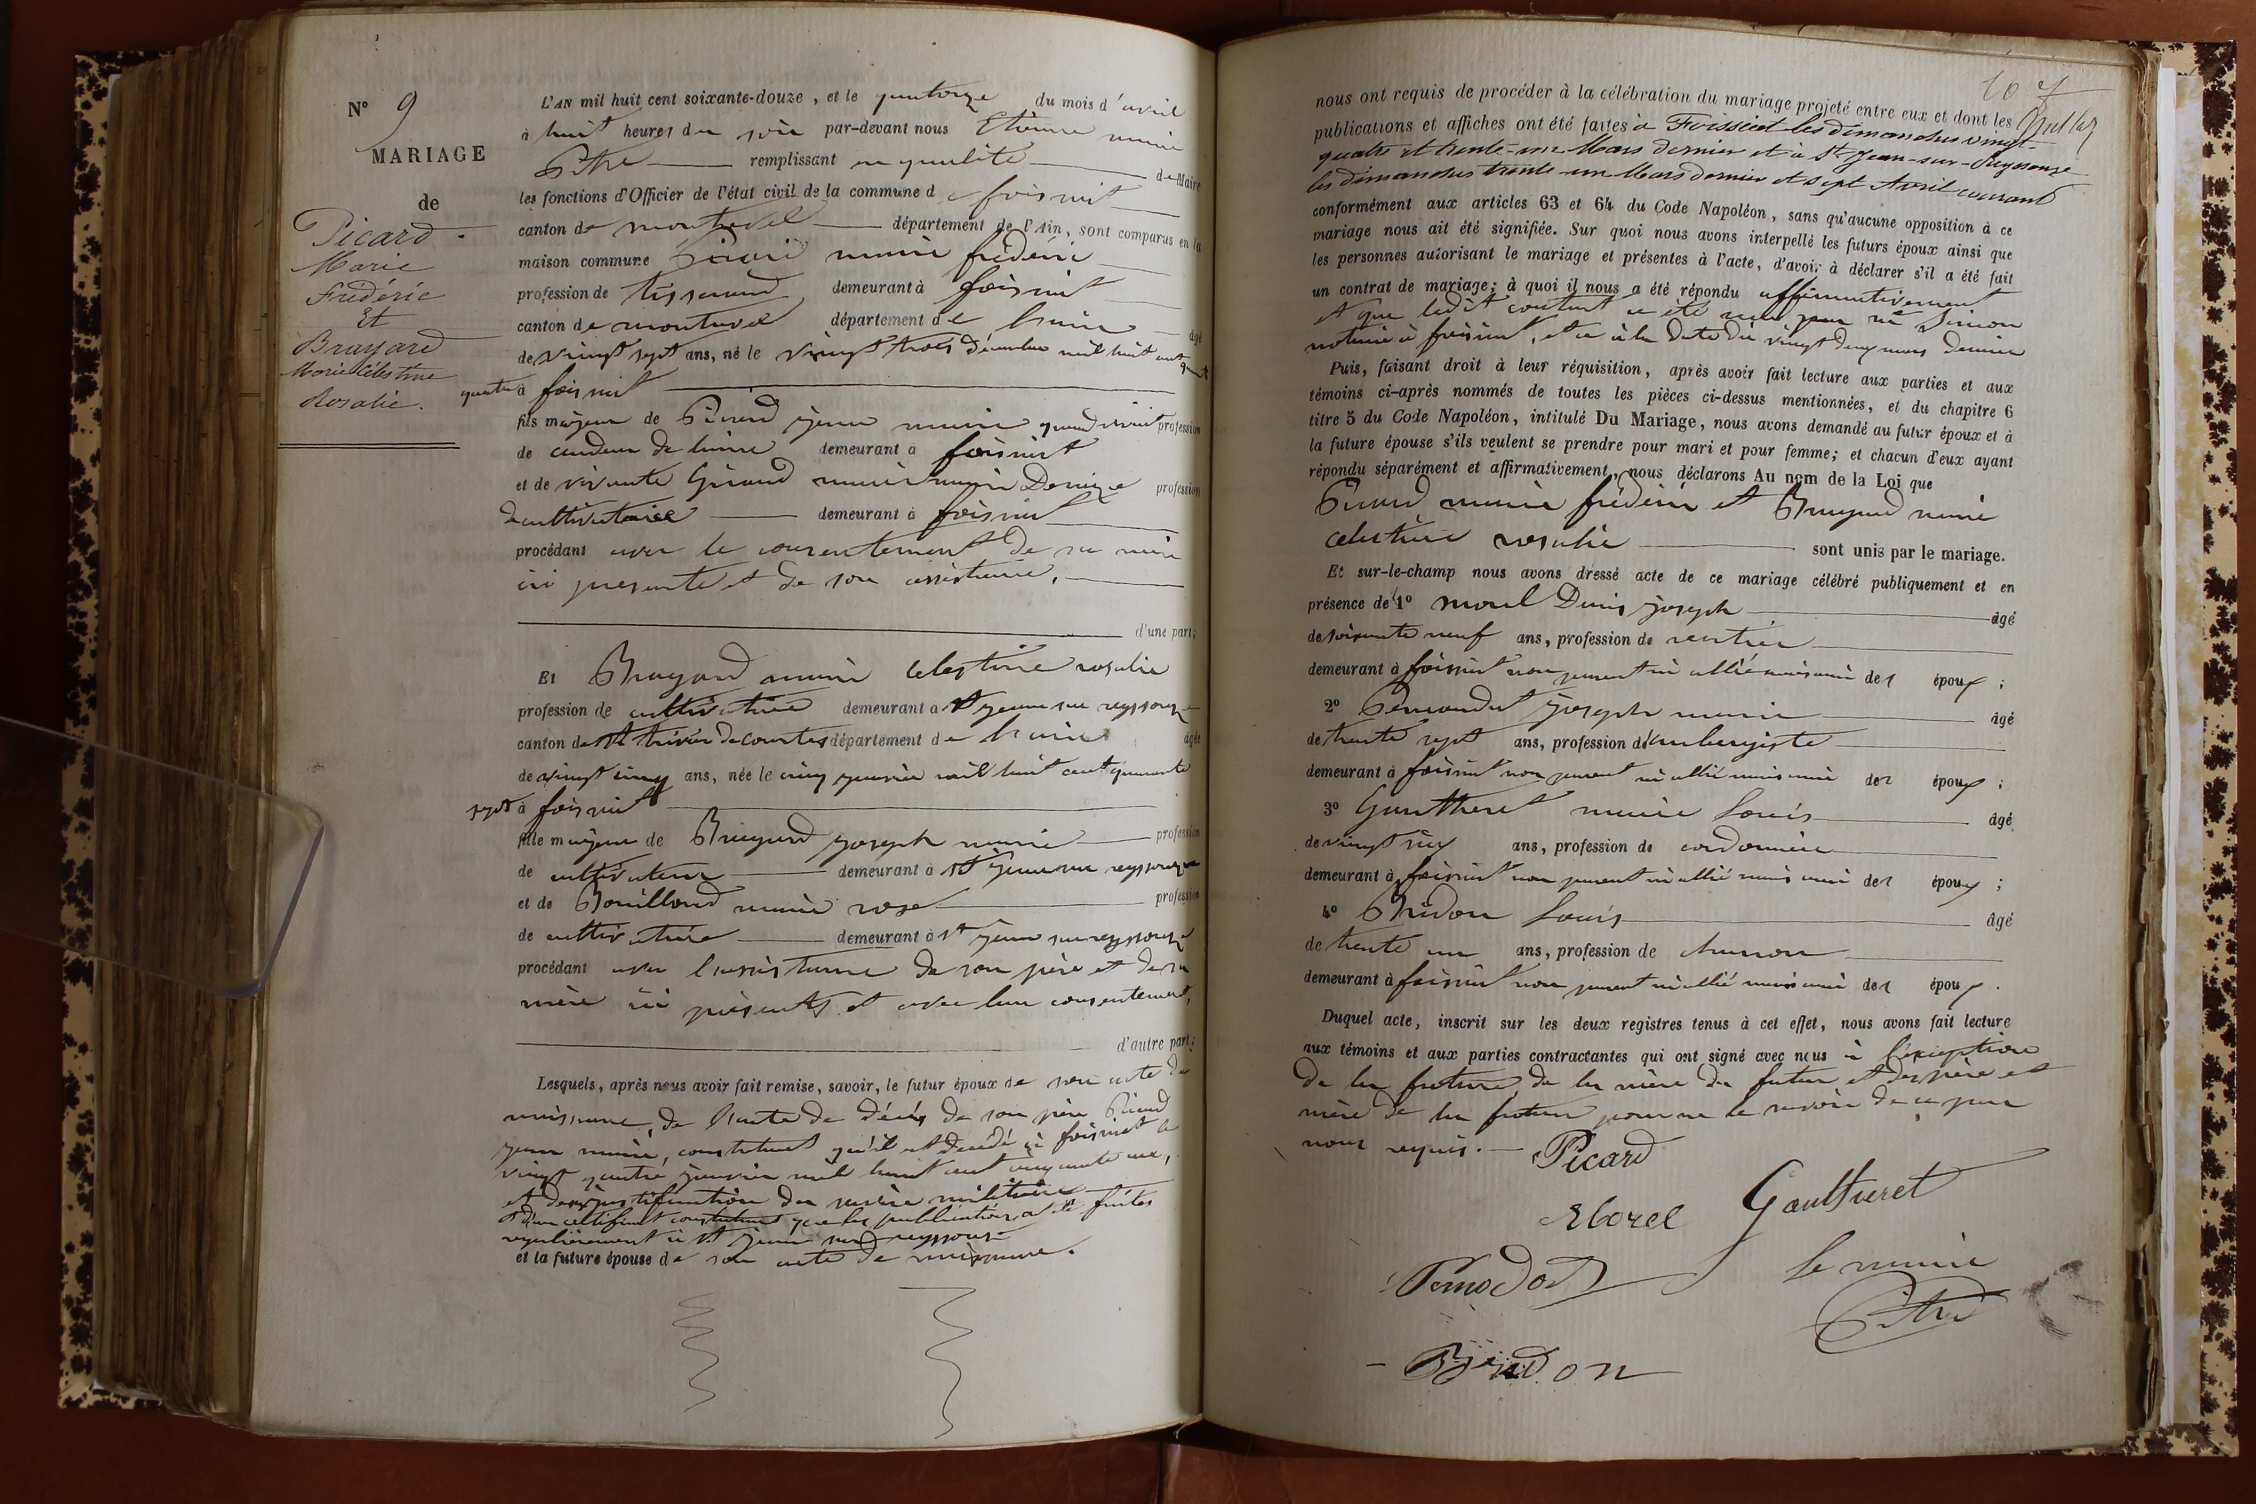 N° 9
MARIAGE
de
Picard
Marie
Frédéric
Et
Bruyard
Marie Célestine
Rosalie.
L'AN mil huit cent soixante-douze, et le quatorze du mois d'avril
à huit heures du soir par-devant nous Etienne marie
Pitre remplissant en qualité de Maire
les fonctions d'Officier de l'état civil de la commune de foissiat
canton de montrevel département de l'Ain, sont comparus en la
maison commune Picard marie frédéric
profession de tisserand demeurant à foissiat
canton de montrevel département de l'ain agé
de vingt sept ans, né le vingt trois décembre mil huit cent quarante
quatre à foissiat
fils majeur de Picard jean marie quand vivait profession
de demeurant à foissiat
et de vivante Giraud marie Denize profession
de cultivatrice demeurant à foissiat
procédant avec le consentement de sa mère
ici présente et de son assistance,
d'une part;
Et Bruyard marie celestine rosalie
profession de cultivatrice demeurant à St jean sur reyssouze
canton de St trivier de courtes département de l'ain agée
de vingt cinq ans, née le cinq janvier mil huit cent quarante
sept à foissiat
fille majeure de Bruyard joseph marie profession
de cultivateur demeurant à St jean sur reyssouze
et de Bouilloud marie rose profession
de cultivatrice demeurant à St jean sur reyssouze
procédant avec l'assistance de son père et de sa
mère ici présents et avec leur consentement,
d'autre part;
Lesquels, après nous avoir fait remise, savoir, le futur époux de son acte de
naissance, de l'acte de décès de son père Picard
jean marie, constatant qu'il est décédé à foissiat le
vingt quatre janvier mil huit cent cinquante
et de justification du service militaire
et d'un certificat constatant que les publications ont été faites
regulièrement à St jean sur reyssouze
et la future épouse de son acte de naissance.
107
nous ont requis de procéder à la célébration du mariage projeté entre eux et dont les
publications et affiches ont été faites à Foissiat les dimanches vingt-
quatre et trente-un Mars dernier et à St Jean-sur-Reyssouze
les dimanches trente-un Mars dernier et sept Avril courant
conformément aux articles 63 et 64 du Code Napoléon, sans qu'aucune opposition à ce
mariage nous ait été signifiée. Sur quoi nous avons interpellé les futurs époux ainsi que
les personnes autorisant le mariage et présentes à l'acte, d'avoir à déclarer s'il a été fait
un contrat de mariage; à quoi il nous a été répondu affirmativement
et que ledit contrat a été reçu par me Simon
notaire à foissiat, et ce à la date du vingt deux mars dernier
Puis, faisant droit à leur réquisition, après avoir fait lecture aux parties et aux
témoins ci-après nommés de toutes les pièces ci-dessus mentionnées, et du chapitre 6
titre 5 du Code Napoléon, intitulé Du Mariage, nous avons demandé au futur époux et à
la future épouse s'ils veulent se prendre pour mari et pour femme; et chacun d'eux ayant
répondu séparément et affirmativement, nous déclarons Au nom de la Loi que
Picard marie frédéric et Bruyard marie
celestine rosalie sont unis par le mariage.
Et sur-le-champ nous avons dressé acte de ce mariage célébré publiquement et en
présence de 1° morel Denis joseph âgé
de soixante neuf ans, profession de rentier
demeurant à foissiat non parent ni allié mais ami des époux;
2° joseph marie âgé
de trente sept ans, profession d'aubergiste
demeurant à foissiat non parent ni allié mais ami des époux;
3° Gautheret marie louis âgé
de vingt six ans, profession de cordonnier
demeurant à foissiat non parent ni allié mais ami des époux;
4° Bridon louis âgé
de trente un ans, profession de charron
demeurant à foissiat non parent ni allié mais ami des époux.
Duquel acte, inscrit sur les deux registres tenus à cet effet, nous avons fait lecture
aux témoins et aux parties contractantes qui ont signé avec nous à l'exception
de la future, de la mère du futur et des père et
mère de la future pour ne le savoir de ce par
nous requis. Picard
Morel Gautheret
le maire
Pitre
Bridon